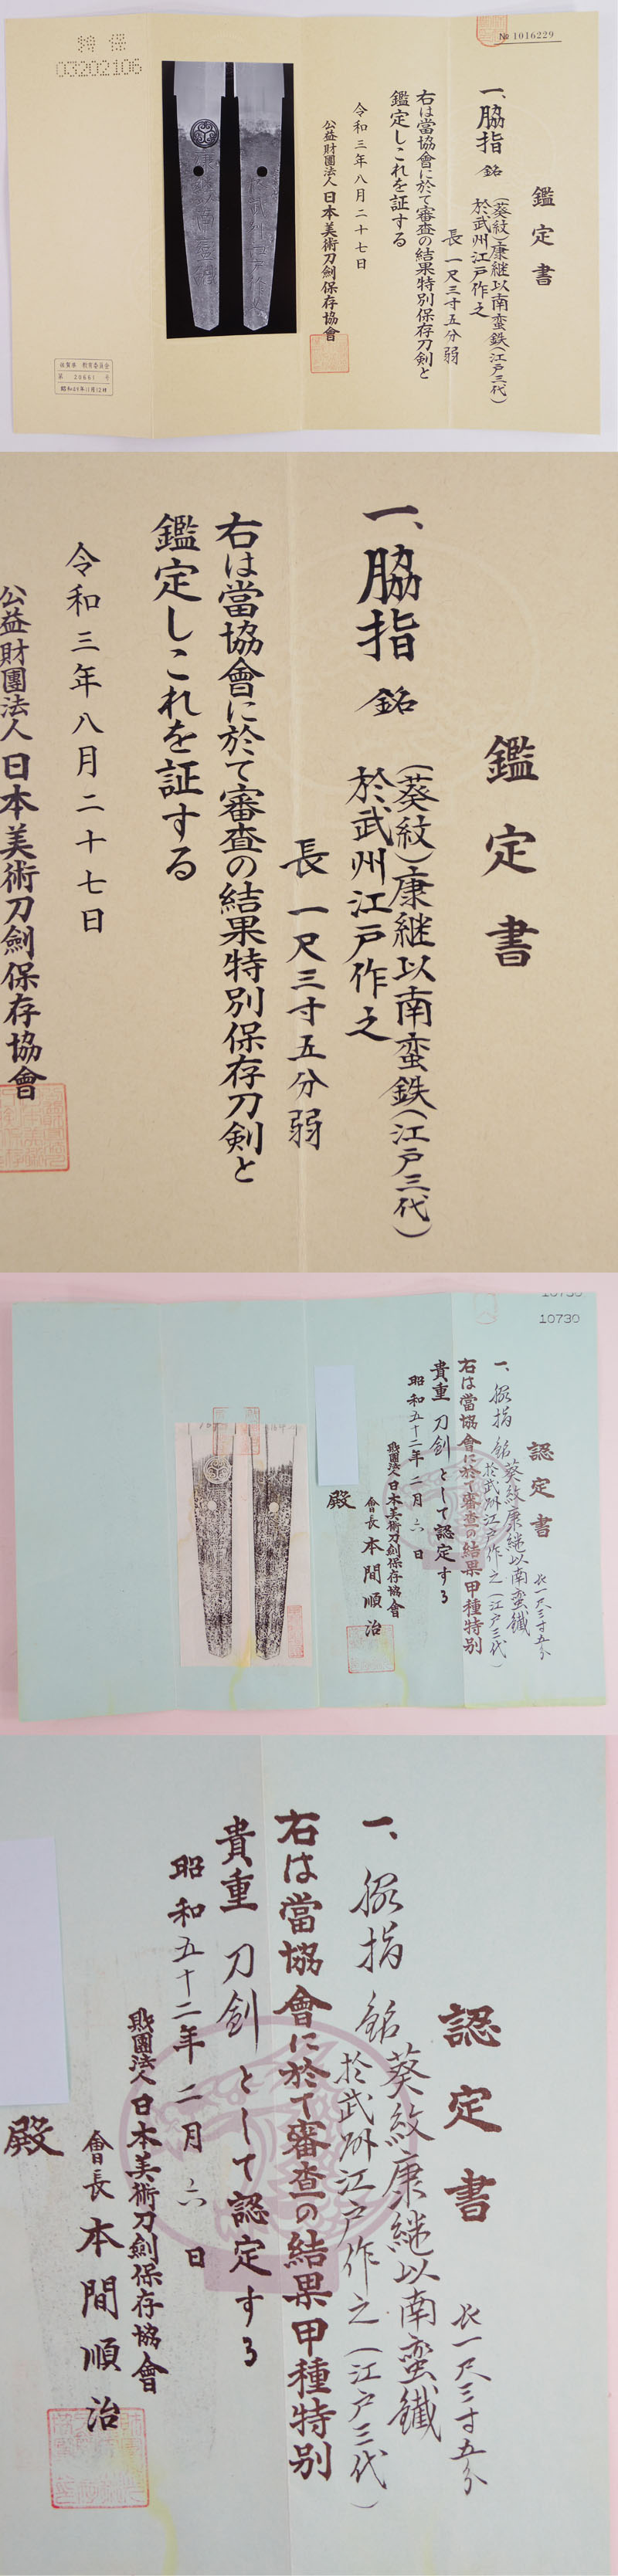 № 1016229
鑑定書
一、脇指 銘
(葵紋)康継以南蛮鉄(江戸三代)
於武州江戸作之
長 一尺三寸五分弱
右は當協會に於て審査の結果特別保存刀剣と
鑑定しこれを証する
令和三年八月二十七日
公益財團法人 日本美術刀劍保存協會
特保
03202106
昭和49年11月12日
鑑定書
一、脇指 銘
(葵紋)康継以南蛮鉄(江戸三代)
於武州江戸作之
長 一尺三寸五分弱
右は當協會に於て審査の結果特別保存刀剣と
鑑定しこれを証する
令和三年八月二十七日
公益財團法人 日本美術刀劍保存協會
10730
10730
認定書
長一尺三寸五分
一、脇指 銘
葵紋康継以南蛮鐵
於武州江戸作之(江戸三代)
右は當協會に於て審査の結果甲種特別
貴重 刀剣 として認定する
昭和五十二年二月六日
財團法人 日本美術刀劍保存協會
會長 本間順治
殿
認定書
長一尺三寸五分
一、脇指 銘
葵紋康継以南蛮鐵
於武州江戸作之(江戸三代)
右は當協會に於て審査の結果甲種特別
貴重 刀剣 として認定する
昭和五十二年二月六日
財團法人 日本美術刀劍保存協會
會長 本間順治
殿